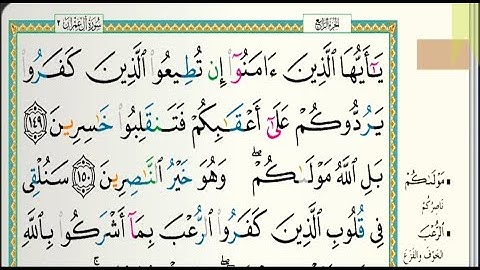 الجزء الرابع
سورة آل عمران ٣
يَٰٓأَيُّهَا ٱلَّذِينَ ءَامَنُوٓا۟ إِن تُطِيعُوا۟ ٱلَّذِينَ كَفَرُوا۟
يَرُدُّوكُمْ عَلَىٰٓ أَعْقَٰبِكُمْ فَتَنقَلِبُوا۟ خَٰسِرِينَ ١٤٩
بَلِ ٱللَّهُ مَوْلَىٰكُمْ ۖ وَهُوَ خَيْرُ ٱلنَّٰصِرِينَ ١٥٠ سَنُلْقِى
فِى قُلُوبِ ٱلَّذِينَ كَفَرُوا۟ ٱلرُّعْبَ بِمَآ أَشْرَكُوا۟ بِٱللَّهِ
مَوْلَىٰكُمْ
نَاصِرُكُمْ
ٱلرُّعْبَ
الخَوْفَ والفَزَعَ